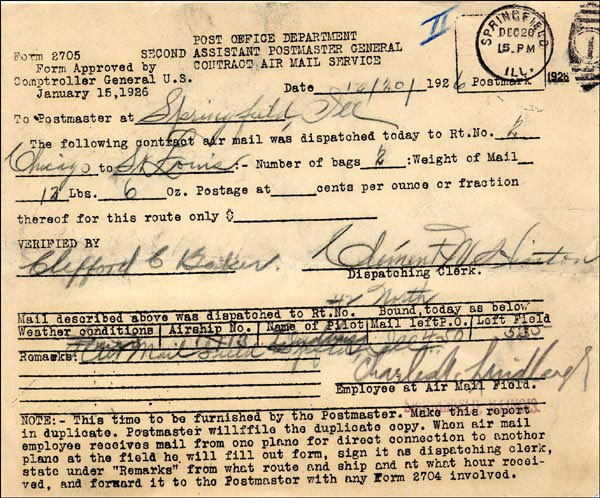 II
POST OFFICE DEPARTMENT
SECOND ASSISTANT POSTMASTER GENERAL
CONTRACT AIR MAIL SERVICE
Form 2705
Form Approved by
Comptroller General U.S.
January 15,1926
SPRINGFIELD
DEC 20
5 PM
ILL.
1926
Date 12/20/ 1926 Postmark
To Postmaster at Springfield, Ill
The following contract air mail was dispatched today to Rt.No. 2
Chicago to St Louis:- Number of bags 2 :Weight of Mail
12 Lbs. 6 Oz. Postage at cents per ounce or fraction
thereof for this route only $
VERIFIED BY
Clifford C Baker. Clement
Dispatching Clerk.
North
Mail described above was dispatched to Rt.No. Bound,today as below
Weather conditions Airship No. Name of Pilot Mail left P.O. Left Field
Remarks: Air Mail Field
Charles A Lindbergh
Employee at Air Mail Field.
NOTE:- This time to be furnished by the Postmaster. Make this report
in duplicate. Postmaster willffile the duplicate copy. When air mail
employee receives mail from one plane for direct connection to another
plane at the field he will fill out form, sign it as dispatching clerk,
state under "Remarks" from what route and ship and at what hour recei-
ved, and forward it to the Postmaster with any Form 2704 involved.